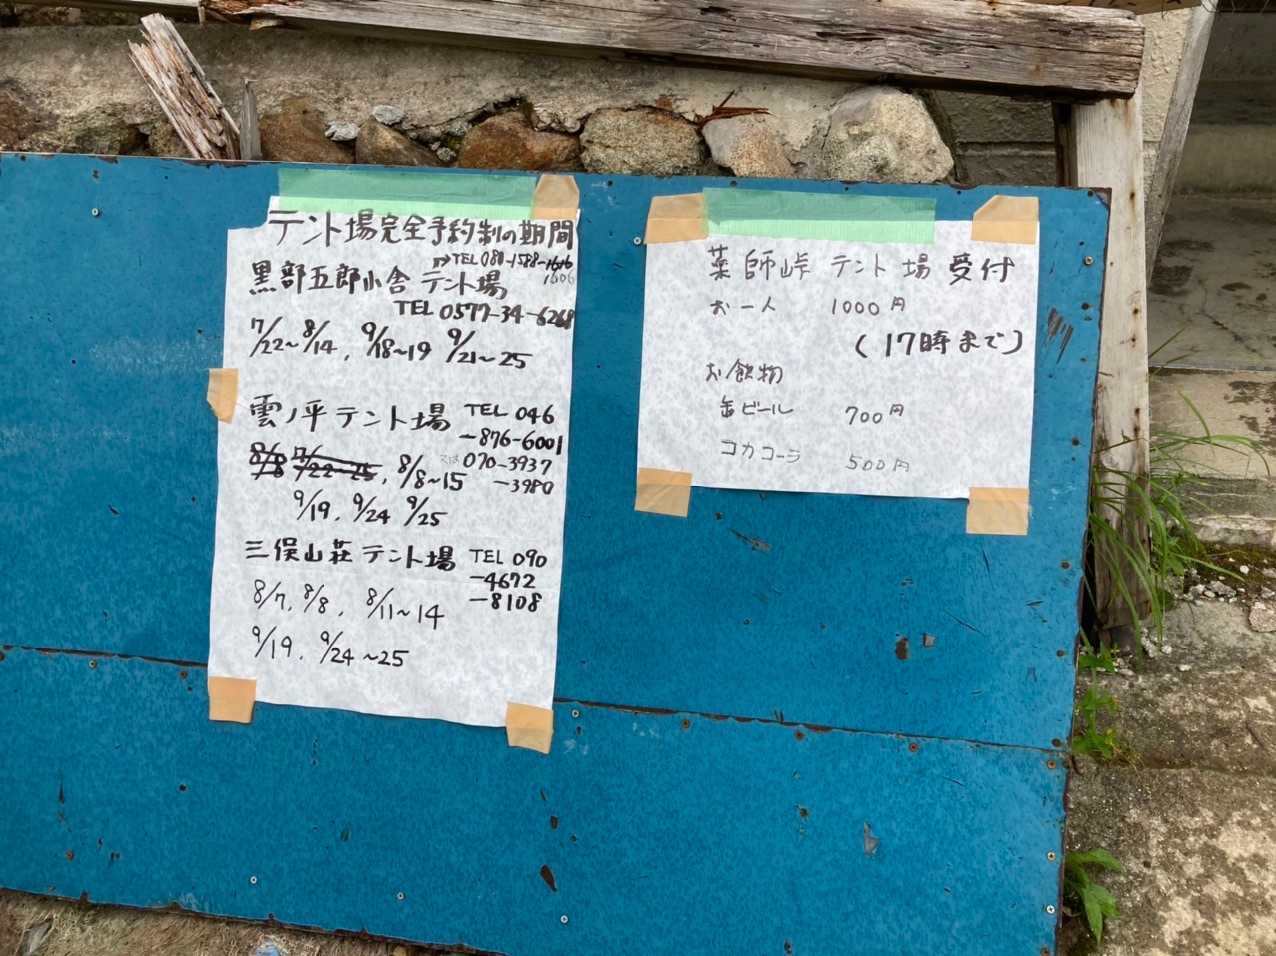 テント場完全予約制の期間
黒部五郎小舎 テント場
TEL 080-1588-
TEL 0577-34-6268
7/22~8/14, 9/18~19 9/21~25
雲ノ平テント場 TEL 046
-876-6001
8/8~15 又は070-3937
-3980
9/19, 9/24 9/25
三俣山荘テント場 TEL 090
-4672
-8108
8/7, 8/8, 8/11~14
9/19, 9/24~25
薬師峠 テント場 受付
お一人 1000円
(17時まで)
お飲物
缶ビール 700円
コカコーラ 500円